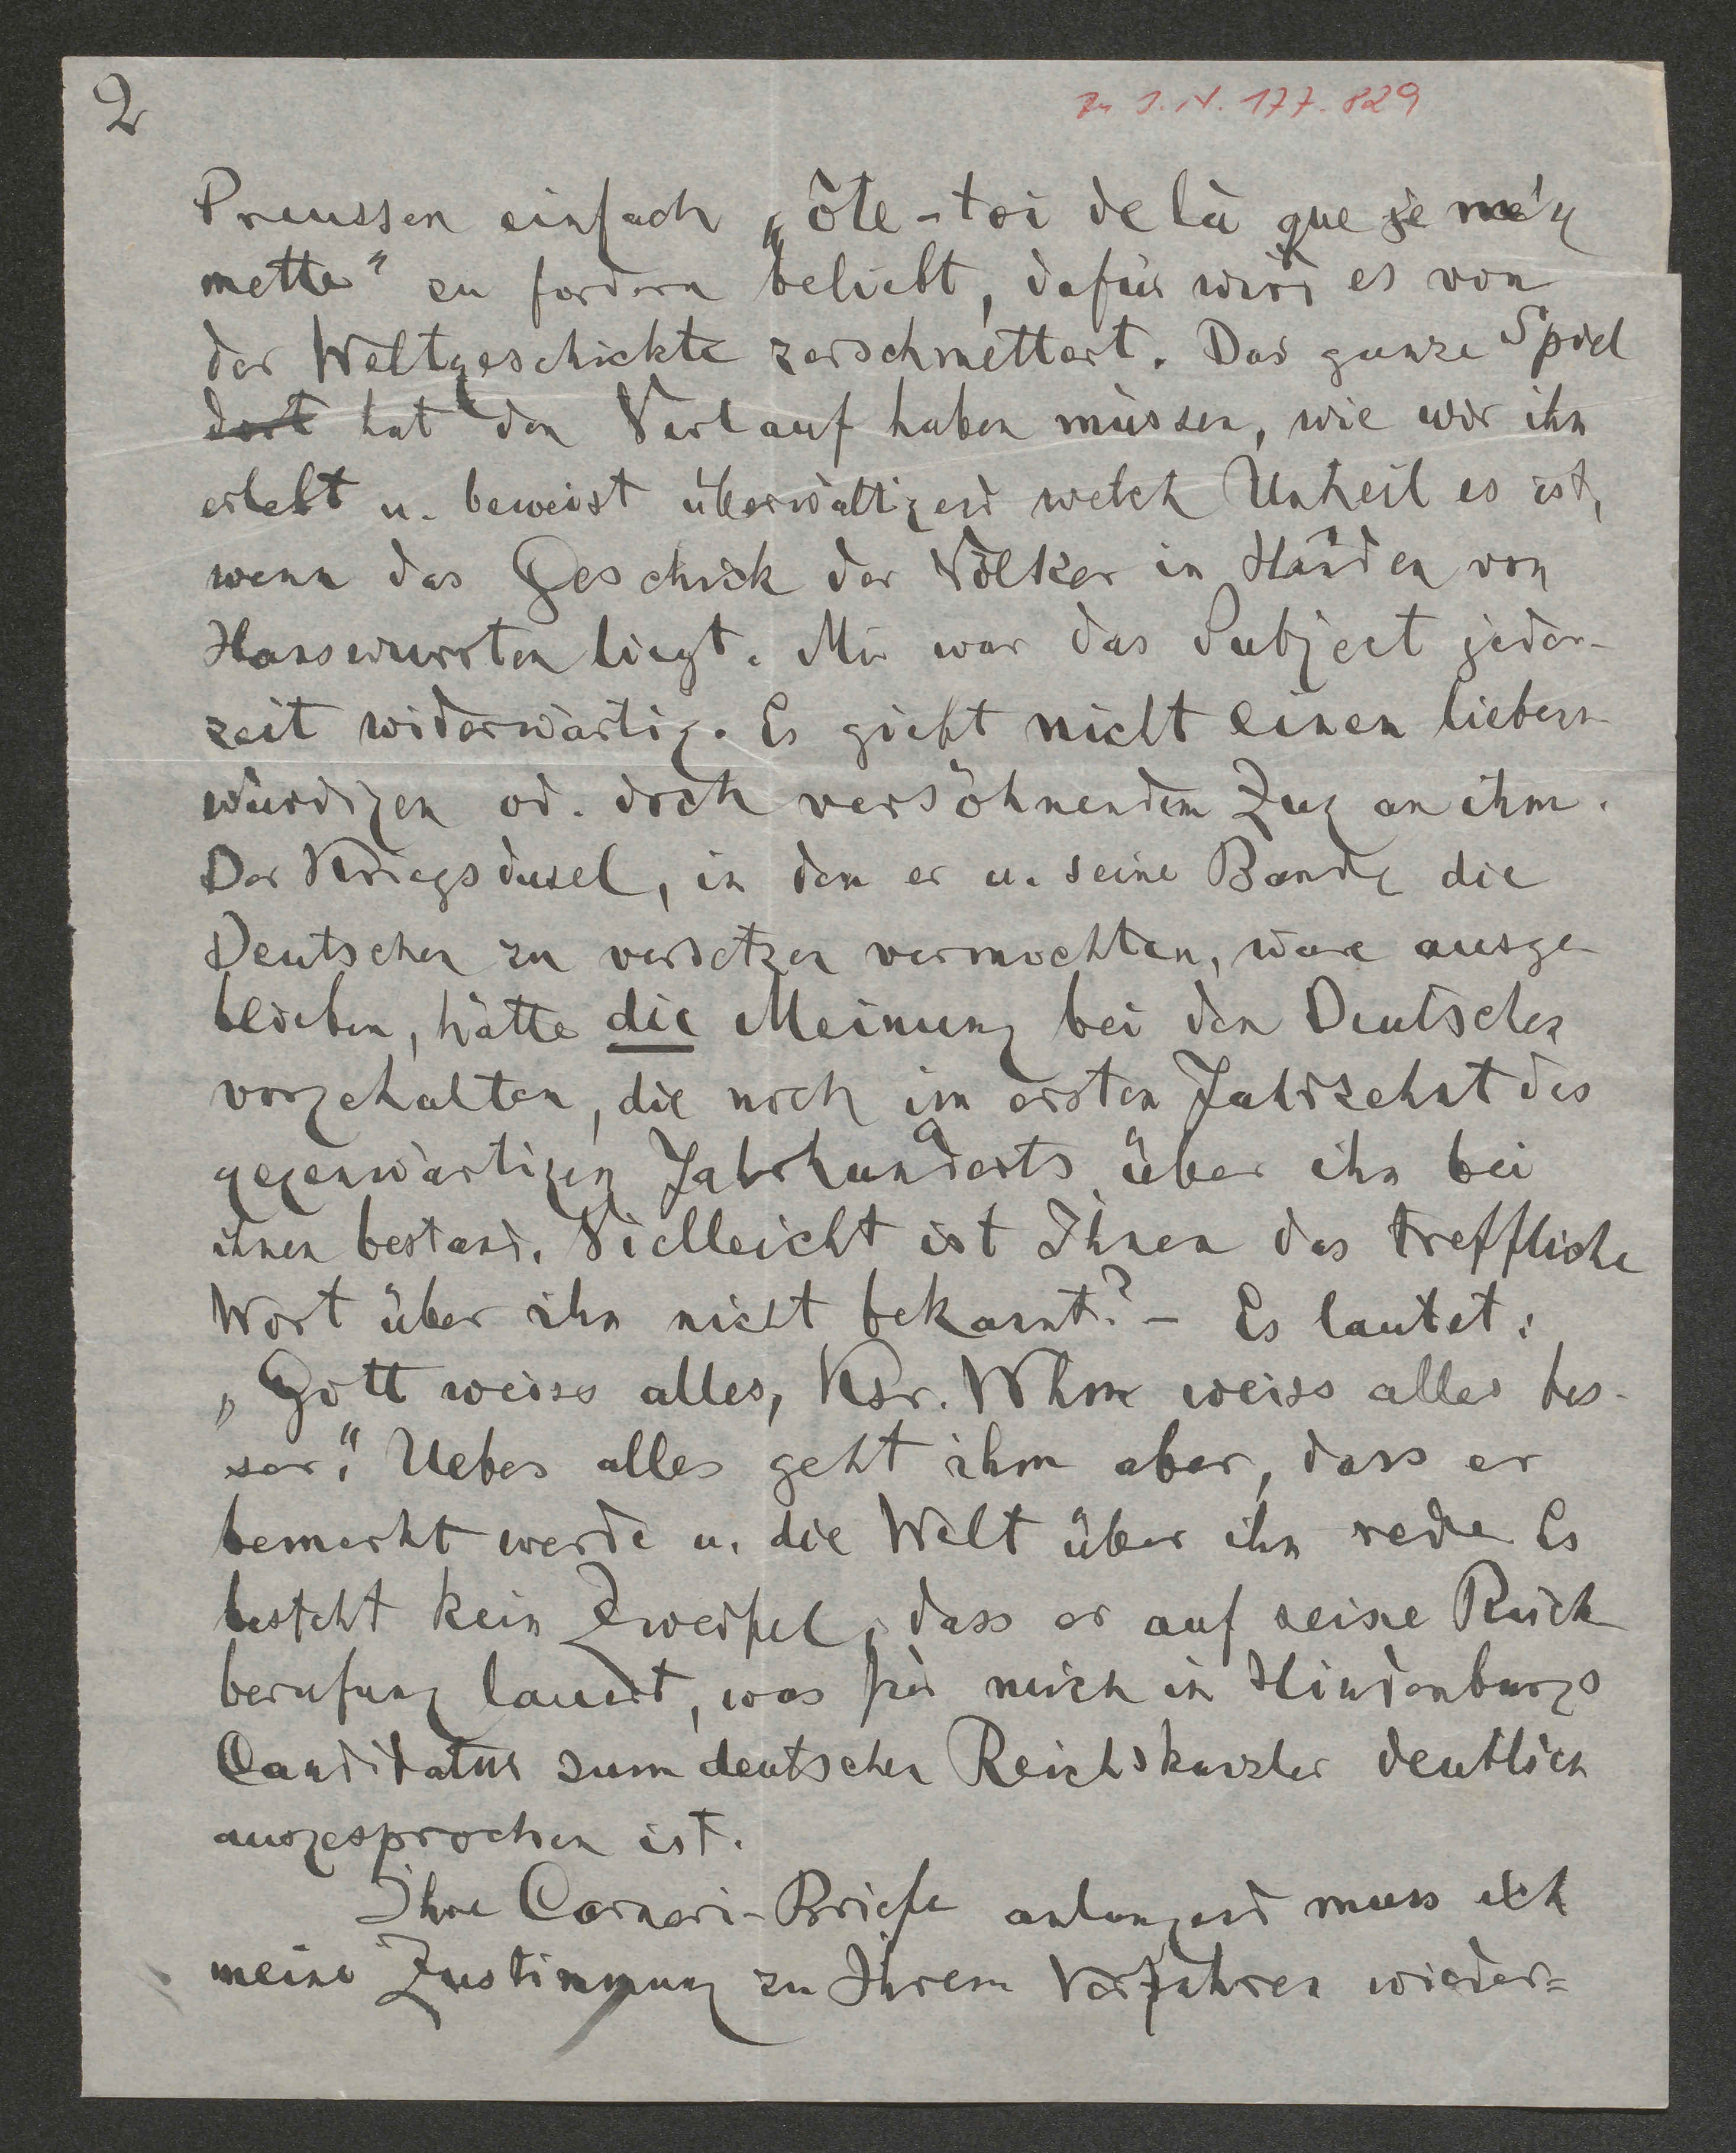 2
Zu I.N. 177.829
Preussen einfach „ôte-toi de là que je m'y
mette“ zu fordern beliebt, dafür wird es von
der Weltgeschichte zerschmettert. Das ganze Spiel
dort hat den Verlauf haben müssen, wie wir ihn
erlebt u. beweist überwältigend welch Unheil es ist,
wenn das Geschick der Völker in Händen von
Hanswursten liegt. Mir war das Subject jeder-
zeit widerwärtig. Es giebt nicht einen liebens-
würdigen od. doch versöhnenden Zug an ihm.
Der Kriegsdusel, in den er u. seine Bande die
Deutschen zu versetzen vermochten, wäre ausge-
blieben, hätte die Meinung bei den Deutschen
vorgehalten, die noch im ersten Jahrzehnt des
gegenwärtigen Jahrhunderts über ihn bei
ihnen bestand. Vielleicht ist Ihnen das treffliche
Wort über ihn nicht bekannt? – Es lautet:
„Gott weiss alles, Ksr. Whm weiss alles bes-
ser“. Ueber alles geht ihm aber, dass er
bemerkt werde u. die Welt über ihn rede. Es
besteht kein Zweifel, dass er auf seine Rück
berufung lauert, was für mich in Hindenburgs
Candidatur zum deutschen Reichskanzler deutlich
ausgesprochen ist.
Ihre Carneri-Briefe anlangend muss ich
meine Zustimmung zu Ihrem Verfahren wieder=